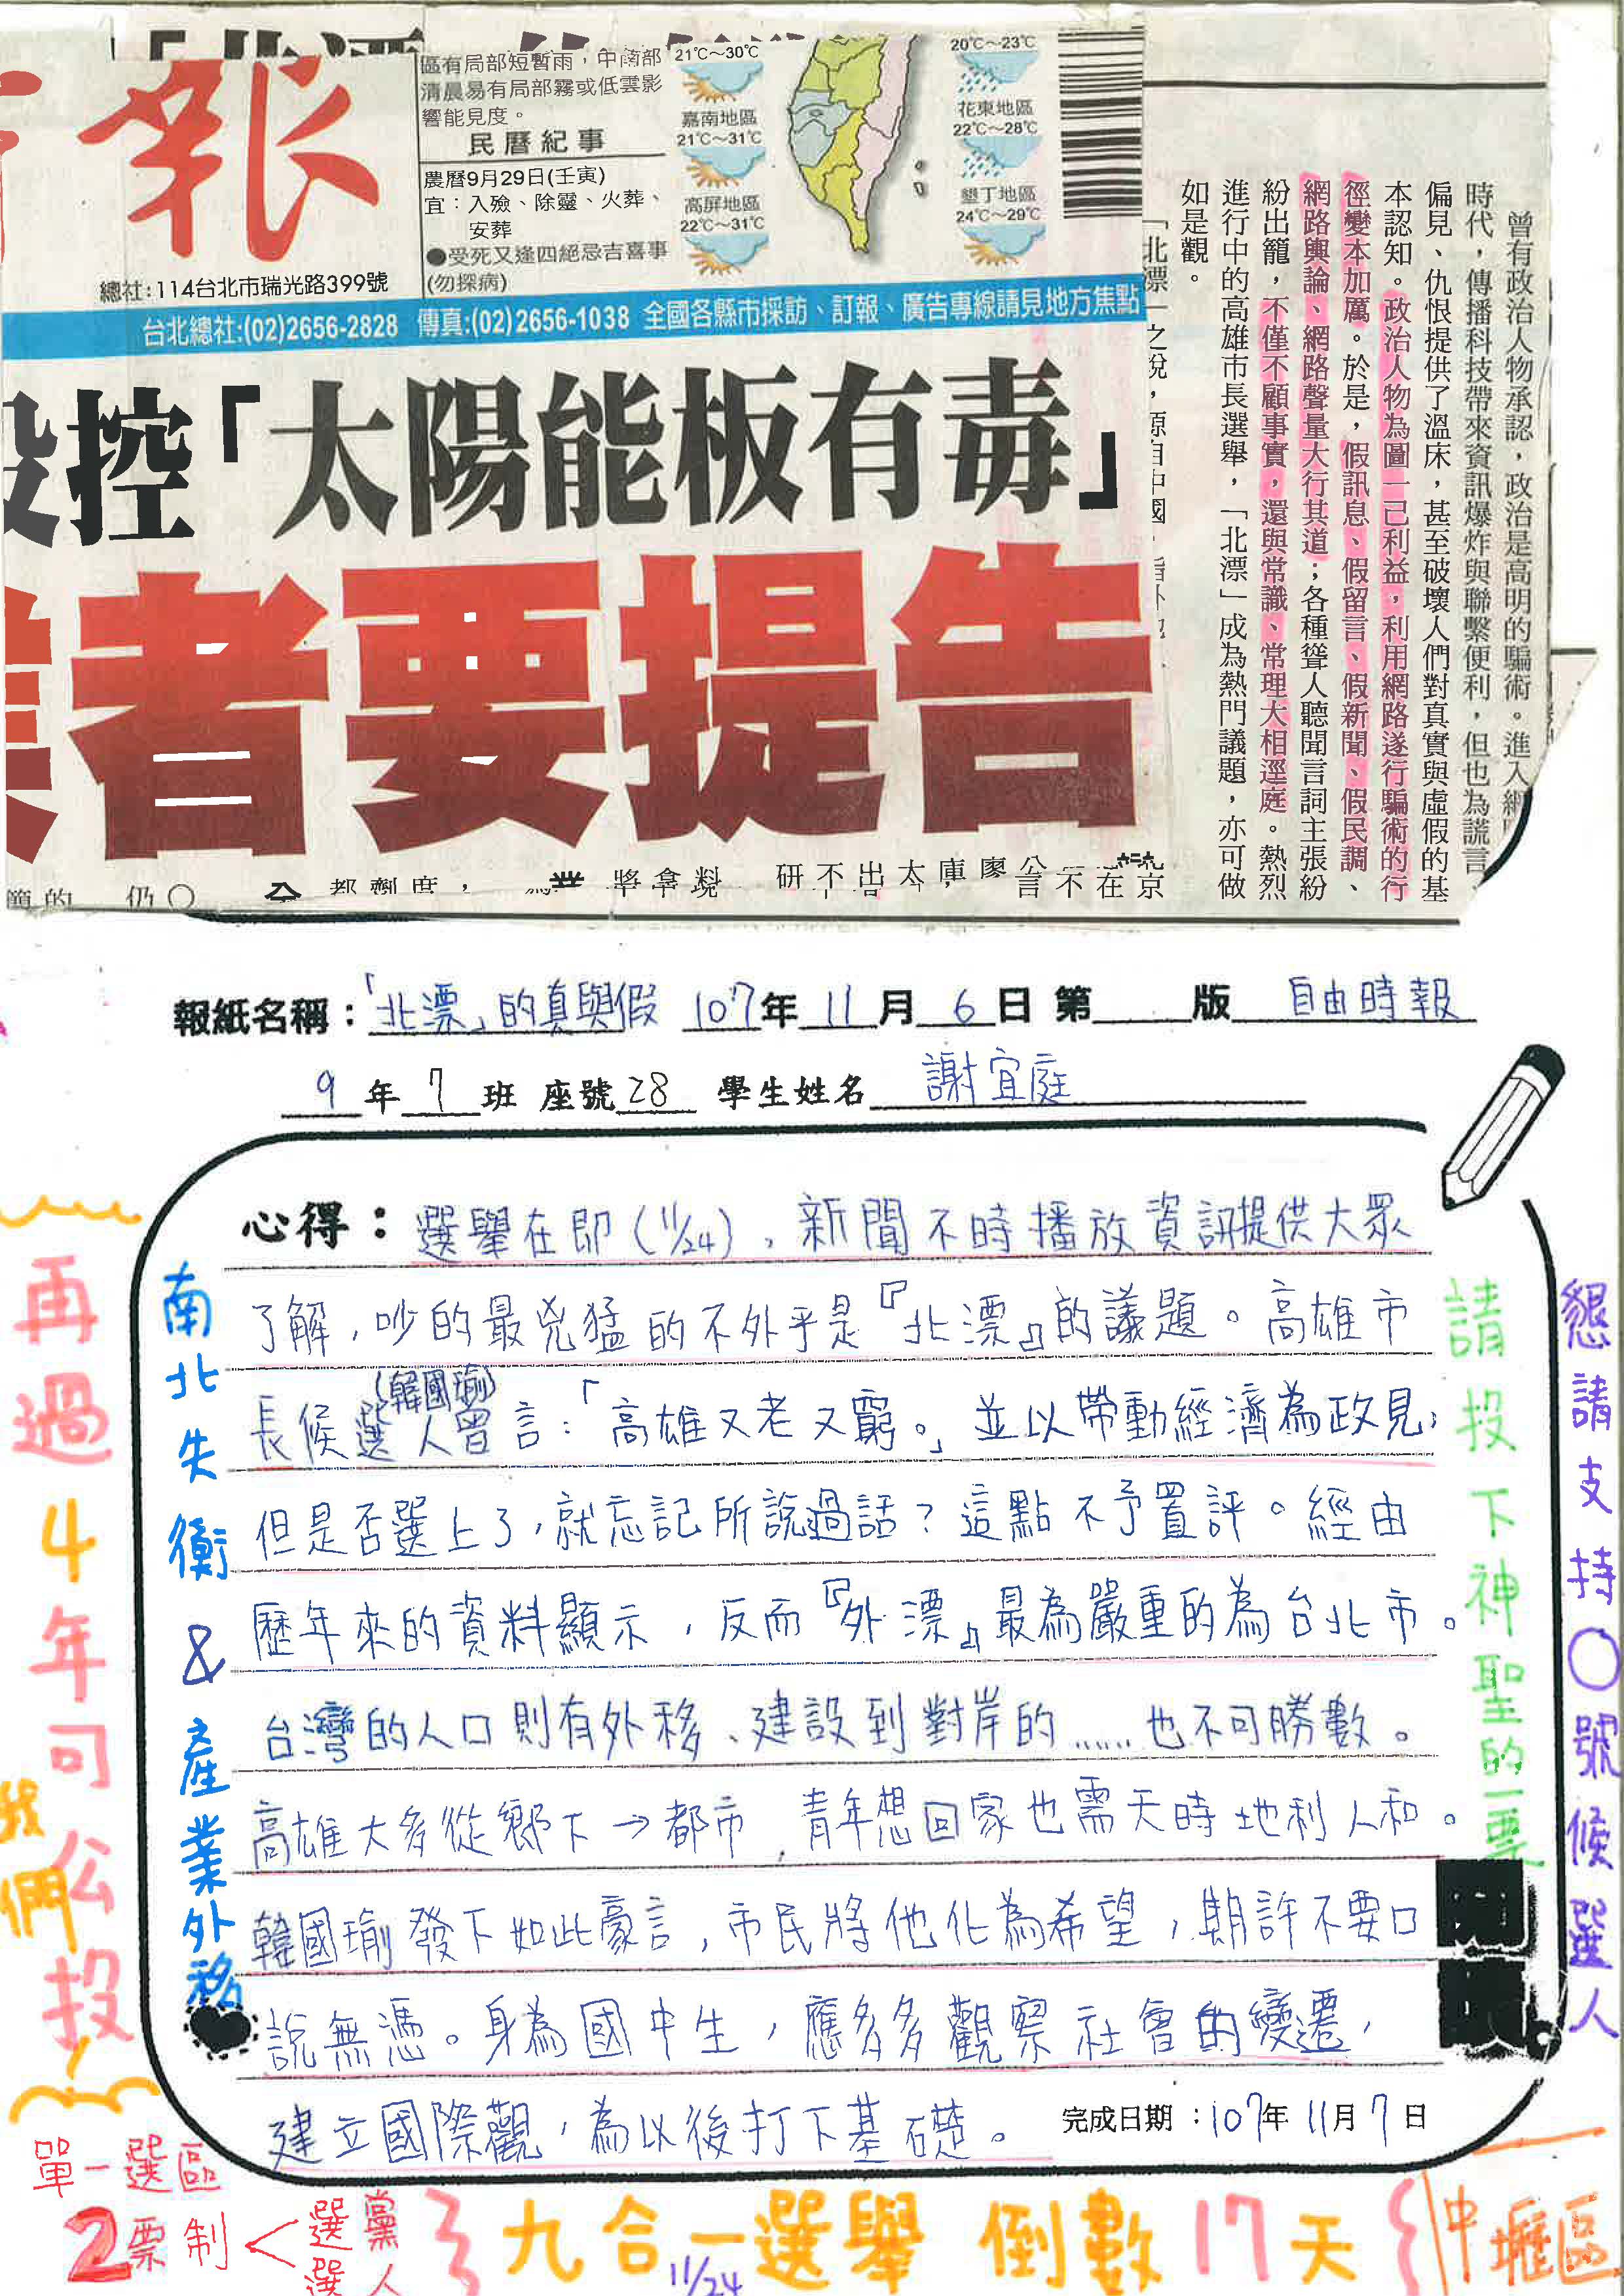 報
區有局部短暫雨，中南部
清晨易有局部霧或低雲影
響能見度。
民曆紀事
農曆9月29日(壬寅)
宜：入殮、除靈、火葬、
安葬
●受死又逢四絕忌吉喜事
(勿探病)
21℃～30℃
嘉南地區
21℃～31℃
高屏地區
22℃～31℃
20℃～23℃
花東地區
22℃～28℃
墾丁地區
24℃～29℃
總社:114台北市瑞光路399號
台北總社:(02)2656-2828 傳真:(02)2656-1038 全國各縣市採訪、訂報、廣告專線請見地方焦點
控「太陽能板有毒」
者要提告
曾有政治人物承認，政治是高明的騙術。進入網
時代，傳播科技帶來資訊爆炸與聯繫便利，但也為謊言、
偏見、仇恨提供了溫床，甚至破壞人們對真實與虛假的基
本認知。政治人物為圖一己利益，利用網路遂行騙術的行
徑變本加厲。於是，假訊息、假留言、假新聞、假民調、
網路輿論、網路聲量大行其道；各種聳人聽聞言詞主張紛
紛出籠，不僅不顧事實，還與常識、常理大相逕庭。熱烈
進行中的高雄市長選舉，「北漂」成為熱門議題，亦可做
如是觀。
「北漂」之說，源自中國
報紙名稱：「北漂」的真與假 107年 11 月 6 日 第 版 自由時報
9 年 7 班 座號 28 學生姓名 謝宜庭
心得：選舉在即(11/24)，新聞不時播放資訊提供大眾
了解，吵的最兇猛的不外乎是『北漂』的議題。高雄市
長候選人(韓國瑜)曾言：「高雄又老又窮。」並以帶動經濟為政見，
但是否選上了，就忘記所說過話？這點不予置評。經由
歷年來的資料顯示，反而『外漂』最為嚴重的為台北市。
台灣的人口則有外移、建設到對岸的……也不可勝數。
高雄大多從鄉下→都市，青年想回家也需天時地利人和。
韓國瑜發下如此豪言，市民將他化為希望，期許不要口
說無憑。身為國中生，應多多觀察社會的變遷，
建立國際觀，為以後打下基礎。
完成日期：107年 11月 7 日
南北失衡 & 產業外移
再過4年可公投!
我們
請投下神聖的一票
懇請支持○號候選人
單一選區
2票制<選黨
選人
九合一選舉 倒數17天
11/24
中壢區